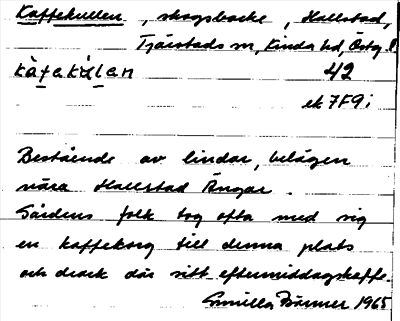 Kaffekullen, skogsbacke, Hallstad,
Tjärstads sn, Kinda hd, Östg. l.
kàfekùlen 42
ek 7F9i
Bestående av lindar, belägen
nära Hallstad Ängar.
Gårdens folk tog ofta med sig
en kaffekorg till denna plats
och drack där sitt eftermiddagskaffe.
Gunilla 1965